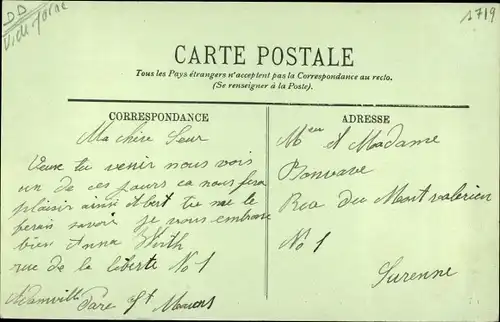 DD
1719
CARTE POSTALE
Tous les Pays étrangers n'acceptent pas la Correspondance au recto.
(Se renseigner à la Poste).
CORRESPONDANCE
Ma chère Seur
Veuse tu venir nous vois
un de ces jours ca nous fera
plaisir ainsi Albert tu me le
ferais savoir je vous embrasse
bien Anna Wirth
rue de la liberte No 1
Adamville Parc St Maurs
ADRESSE
Mseu et Madame
Bonvave
Rue du Mont valerien
No 1
Surenne